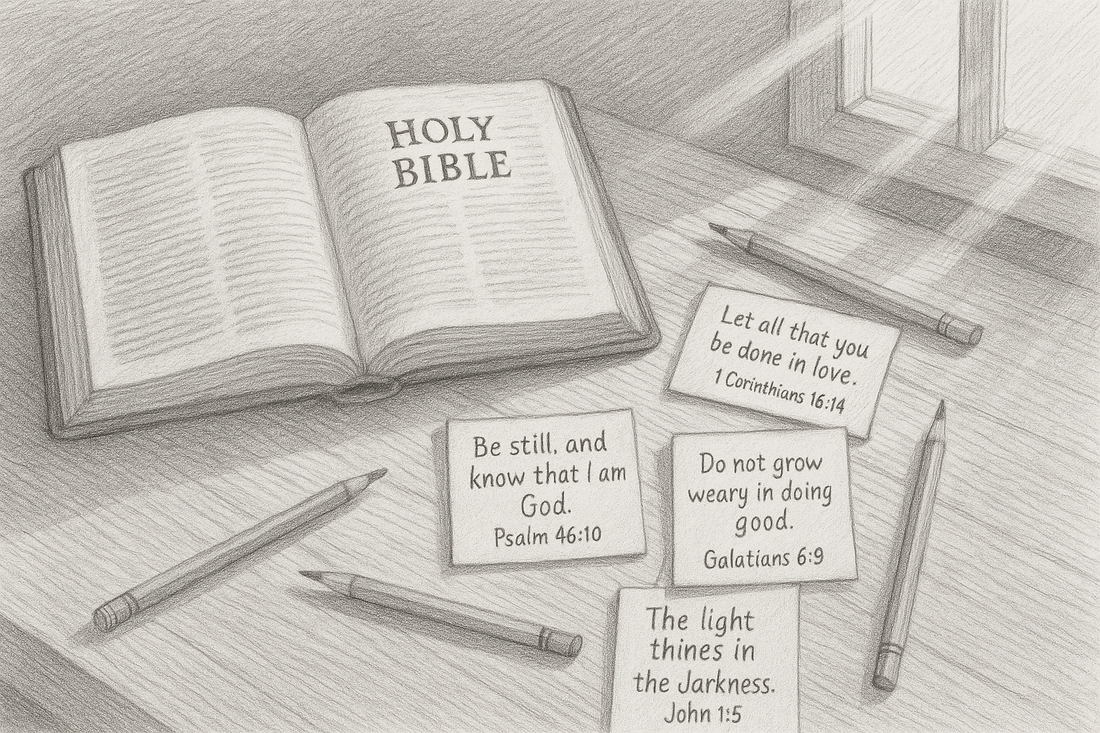 HOLY
BIBLE
Let all that you
be done in love.
1 Corinthians 16:14
Be still, and
know that I am
God.
Psalm 46:10
Do not grow
weary in doing
good.
Galatians 6:9
The light
thines in
the Jarkness.
John 1:5